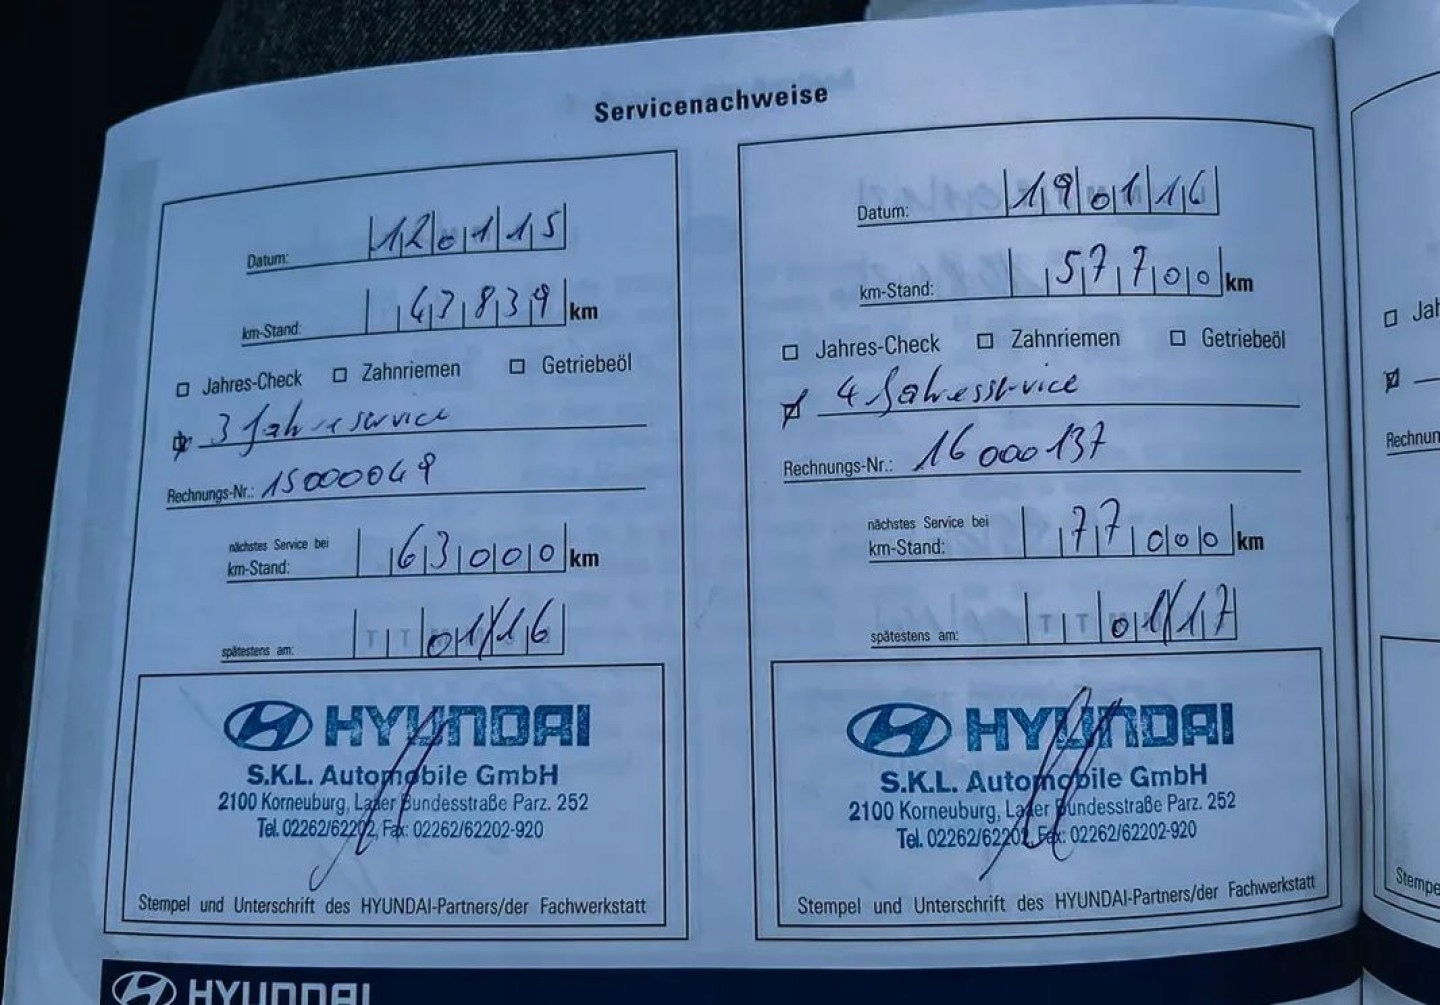 Servicenachweise
Datum: 12 01 15
km-Stand: 43839 km
Jahres-Check Zahnriemen Getriebeöl
3 Jahreservice
Rechnungs-Nr.: 15000049
nächstes Service bei
km-Stand: 63000 km
spätestens am: TT 01/16
HYUNDAI
S.K.L. Automobile GmbH
2100 Korneuburg, Laaer Bundesstraße Parz. 252
Tel. 02262/62202, Fax: 02262/62202-920
Stempel und Unterschrift des HYUNDAI-Partners/der Fachwerkstatt
Datum: 19 01 16
km-Stand: 57700 km
Jahres-Check Zahnriemen Getriebeöl
4 Jahresservice
Rechnungs-Nr.: 16000137
nächstes Service bei
km-Stand: 77000 km
spätestens am: TT 01/17
HYUNDAI
S.K.L. Automobile GmbH
2100 Korneuburg, Laaer Bundesstraße Parz. 252
Tel. 02262/62202, Fax: 02262/62202-920
Stempel und Unterschrift des HYUNDAI-Partners/der Fachwerkstatt
HYUNDAI
Jah
Rechnun
Stempe